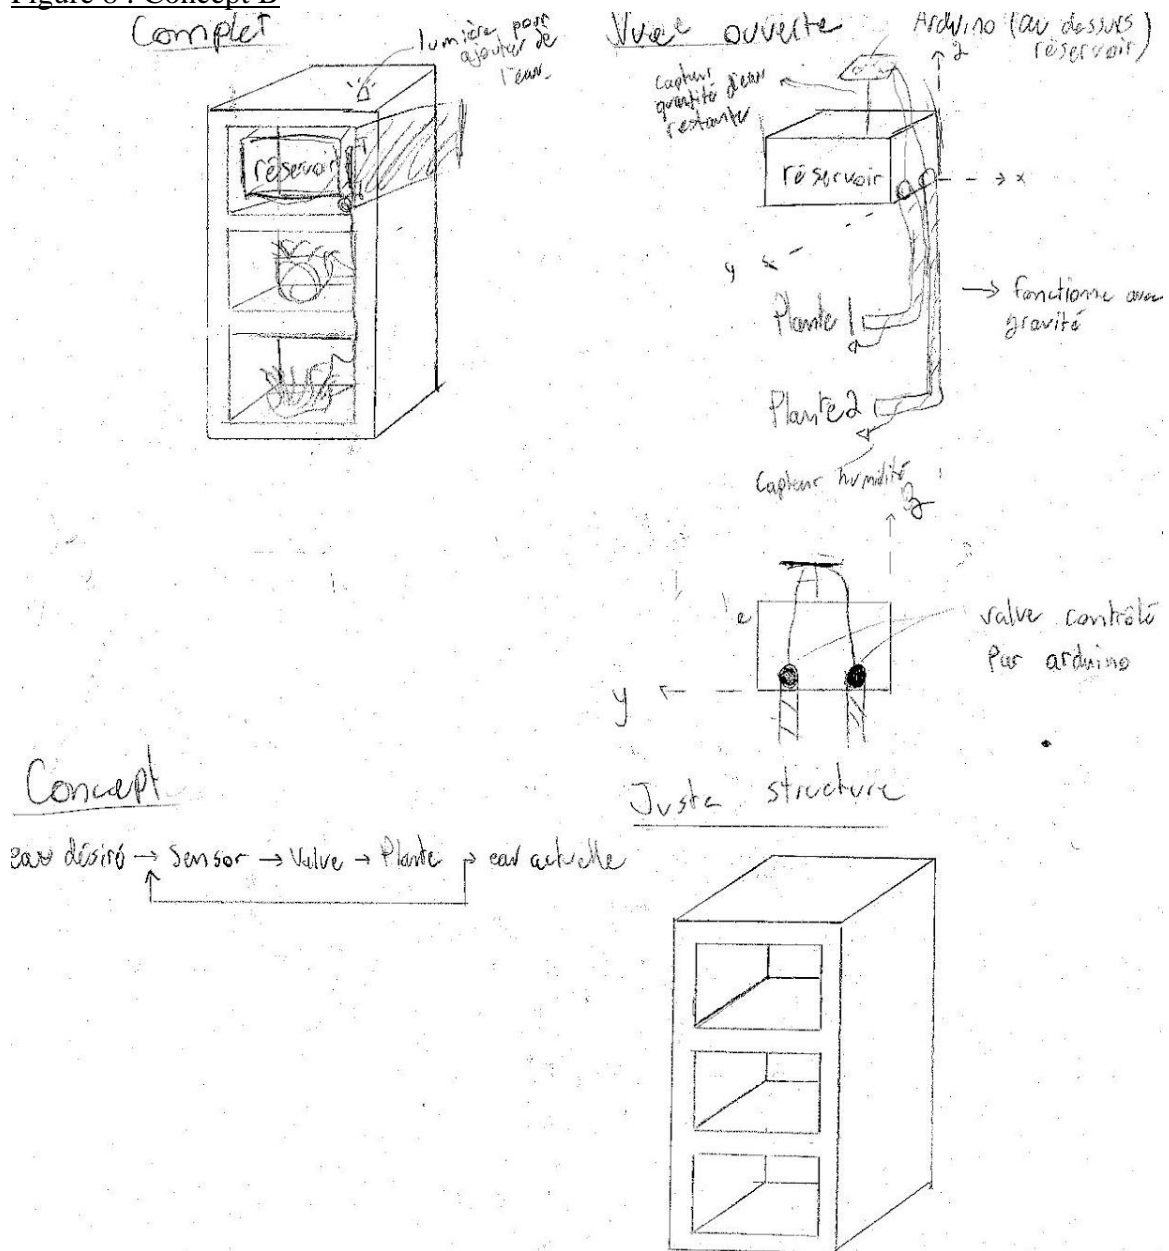 Figure 8 : Concept B
Complet
lumière pour
ajouter de
l'eau
réservoir
Vuee ouverte
Arduino (au dessus
réservoir)
z
Capteur
quantité d'eau
restante
réservoir
x
y
Plante 1
→ fonctionne avec
gravité
Plante 2
Capteur humidité
z
valve contrôlé
par arduino
y
Concept
eau désiré → Sensor → Valve → Plante → eau actuelle
Juste structure